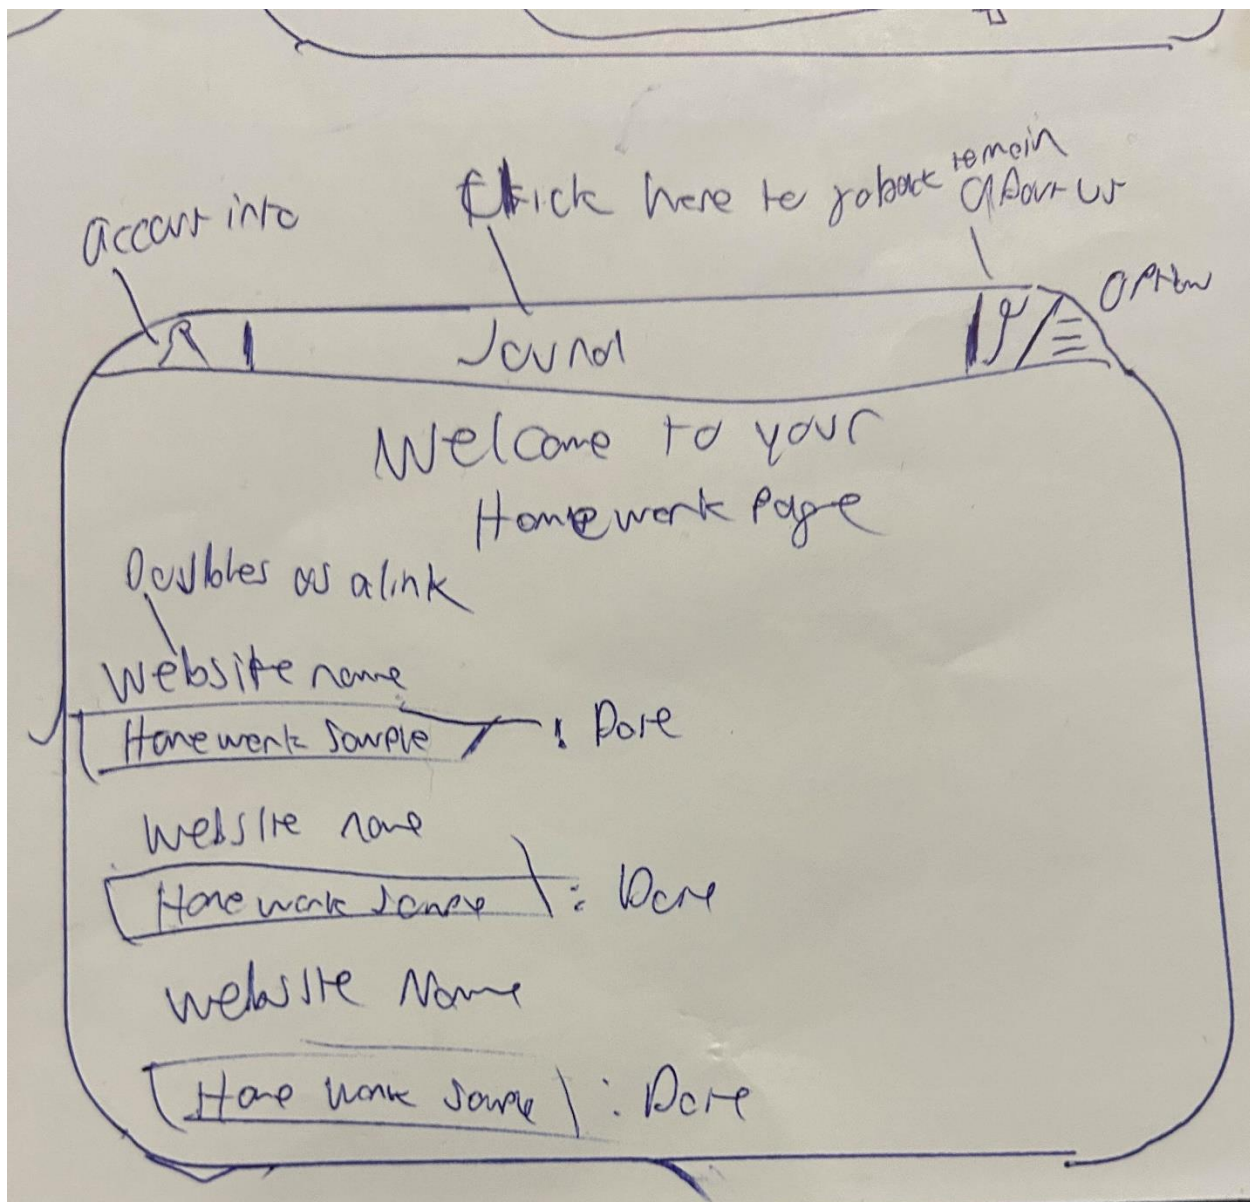 Account info
Click here to go back to main
About us
Option
Journal
Welcome to your
Homework Page
Doubles as a link
Website name
Homework Sample : Date
Website name
Homework Sample : Date
Website Name
Home work Sample : Date